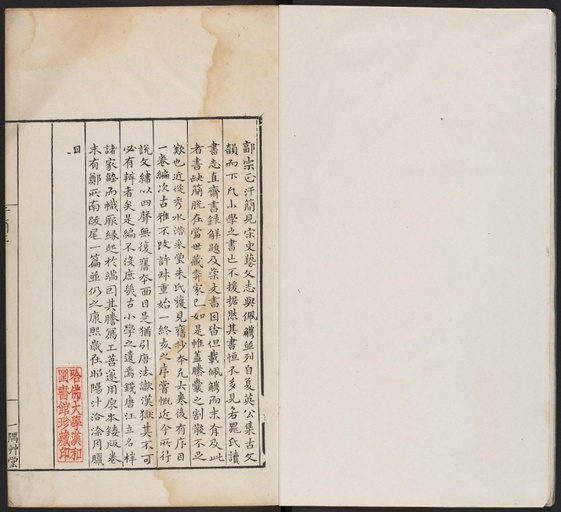 郭宗正汗簡見宋史藝文志與佩觿並列自夏英公集古文
韻而下凡小學之書亡不援据然其書恒不多見若晁氏讀
書志直齋書錄解題及崇文書目皆但載佩觿而未有及此
者書缺簡脫在當世藏弆家已如是帷蓋縢囊之割散不足
歎也近從秀水潛采堂朱氏獲見舊抄本凡六卷後有序目
一卷編次古雅不改許叔重始一終亥之序嘗慨近今所行
說文繡以四聲無復舊本面目是猶引唐法讞漢獄其不可
必有辯者矣是編不沒庶幾古小學之遺焉錢唐汪立名梓
諸家塾而幟厥緣起於端因其謄寫工善遂用原本鋟版卷
末有鄭所南跋尾一篇並仍之康熙歲在昭陽汁洽涂月臘
日
一隅艸堂
哈佛大學漢和
圖書館珍藏印